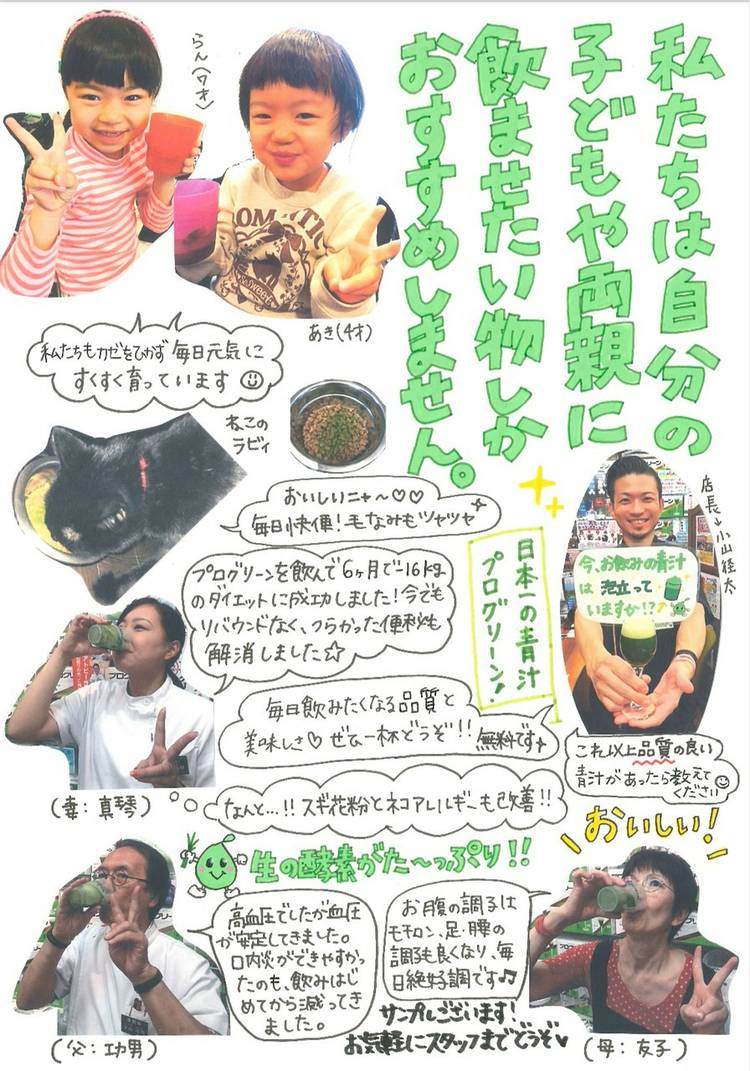 私たちは自分の
子どもや両親に
飲ませたい物しか
おすすめしません。
らん(7才)
あき(4才)
私たちもカゼをひかず毎日元気に
すくすく育っています
ねこの
ラビィ
おいしいニャ〜♡♡
毎日快便!毛なみもツヤツヤ
店長→小山経太
今、お飲みの青汁
は泡立って
いますか!?
日本一の青汁
プログリーン!
プログリーンを飲んで6ヶ月で-16kg
のダイエットに成功しました!今でも
リバウンドなく、つらかった便秘も
解消しました☆
毎日飲みたくなる品質と
美味しさ♡ぜひ一杯どうぞ!!無料です
これ以上品質の良い
青汁があったら教えて
ください
(妻:真琴)
なんと...!!スギ花粉とネコアレルギーも改善!!
おいしい!
生の酵素がた〜っぷり!!
高血圧でしたが血圧
が安定してきました。
口内炎ができやすかっ
たのも、飲みはじ
めてから減ってき
ました。
お腹の調子は
モチロン、足・腰の
調子も良くなり、毎
日絶好調です♫
サンプルございます!
お気軽にスタッフまでどうぞ♥
(父:功男)
(母:友子)